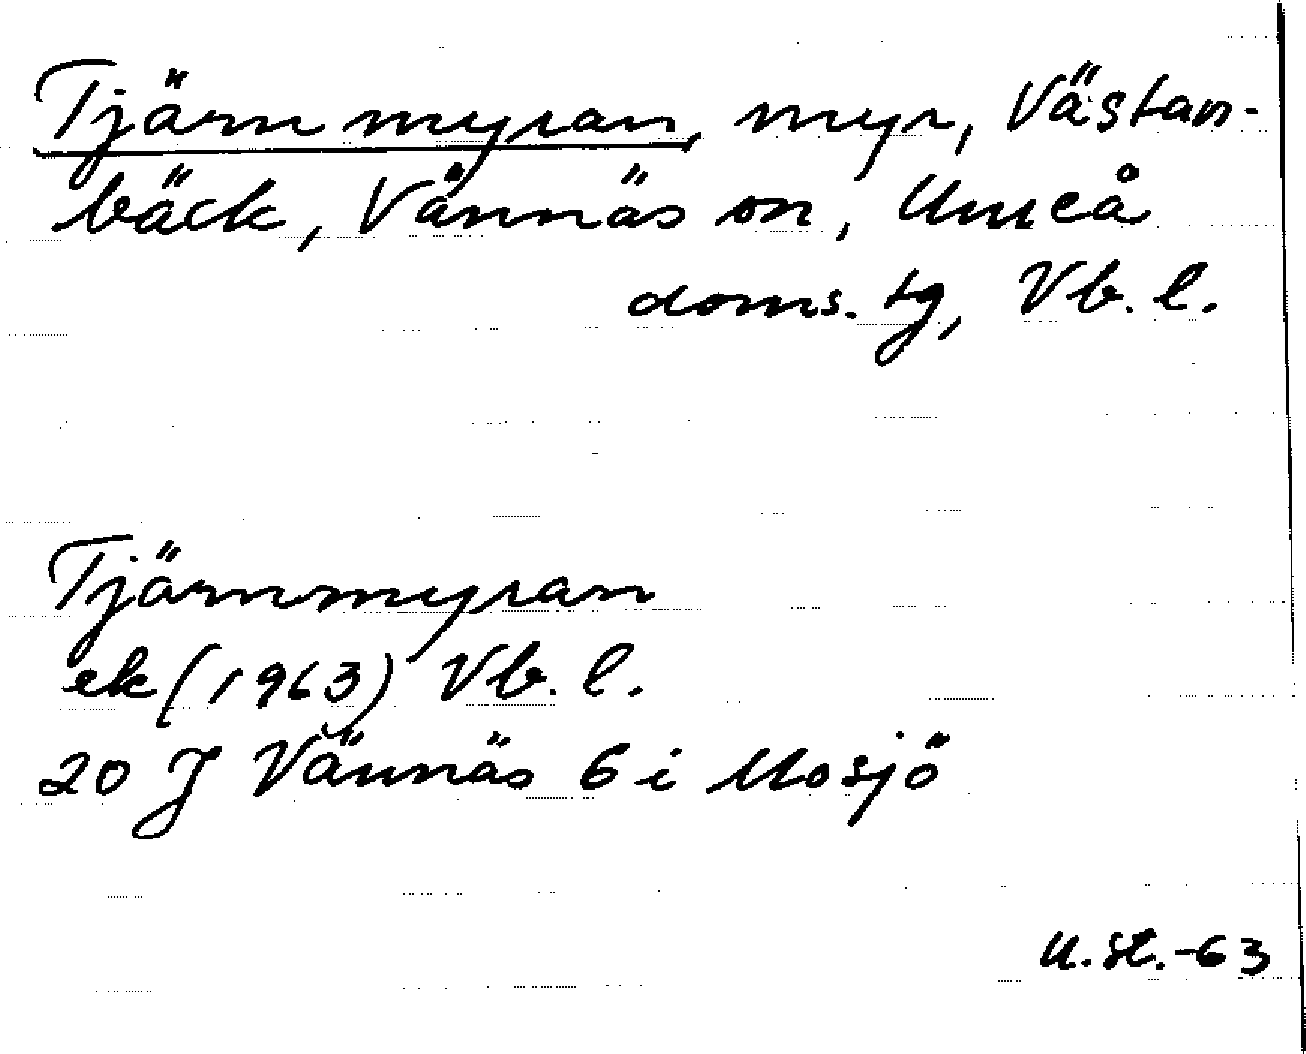 Tjärnmyran, myr, Västan-
bäck, Vännäs sn, Umeå
doms. tg, Vb. l.
Tjärnmyran
ek (1963) Vb. l.
20 J Vännäs 6 i Mosjö
U. St. -63